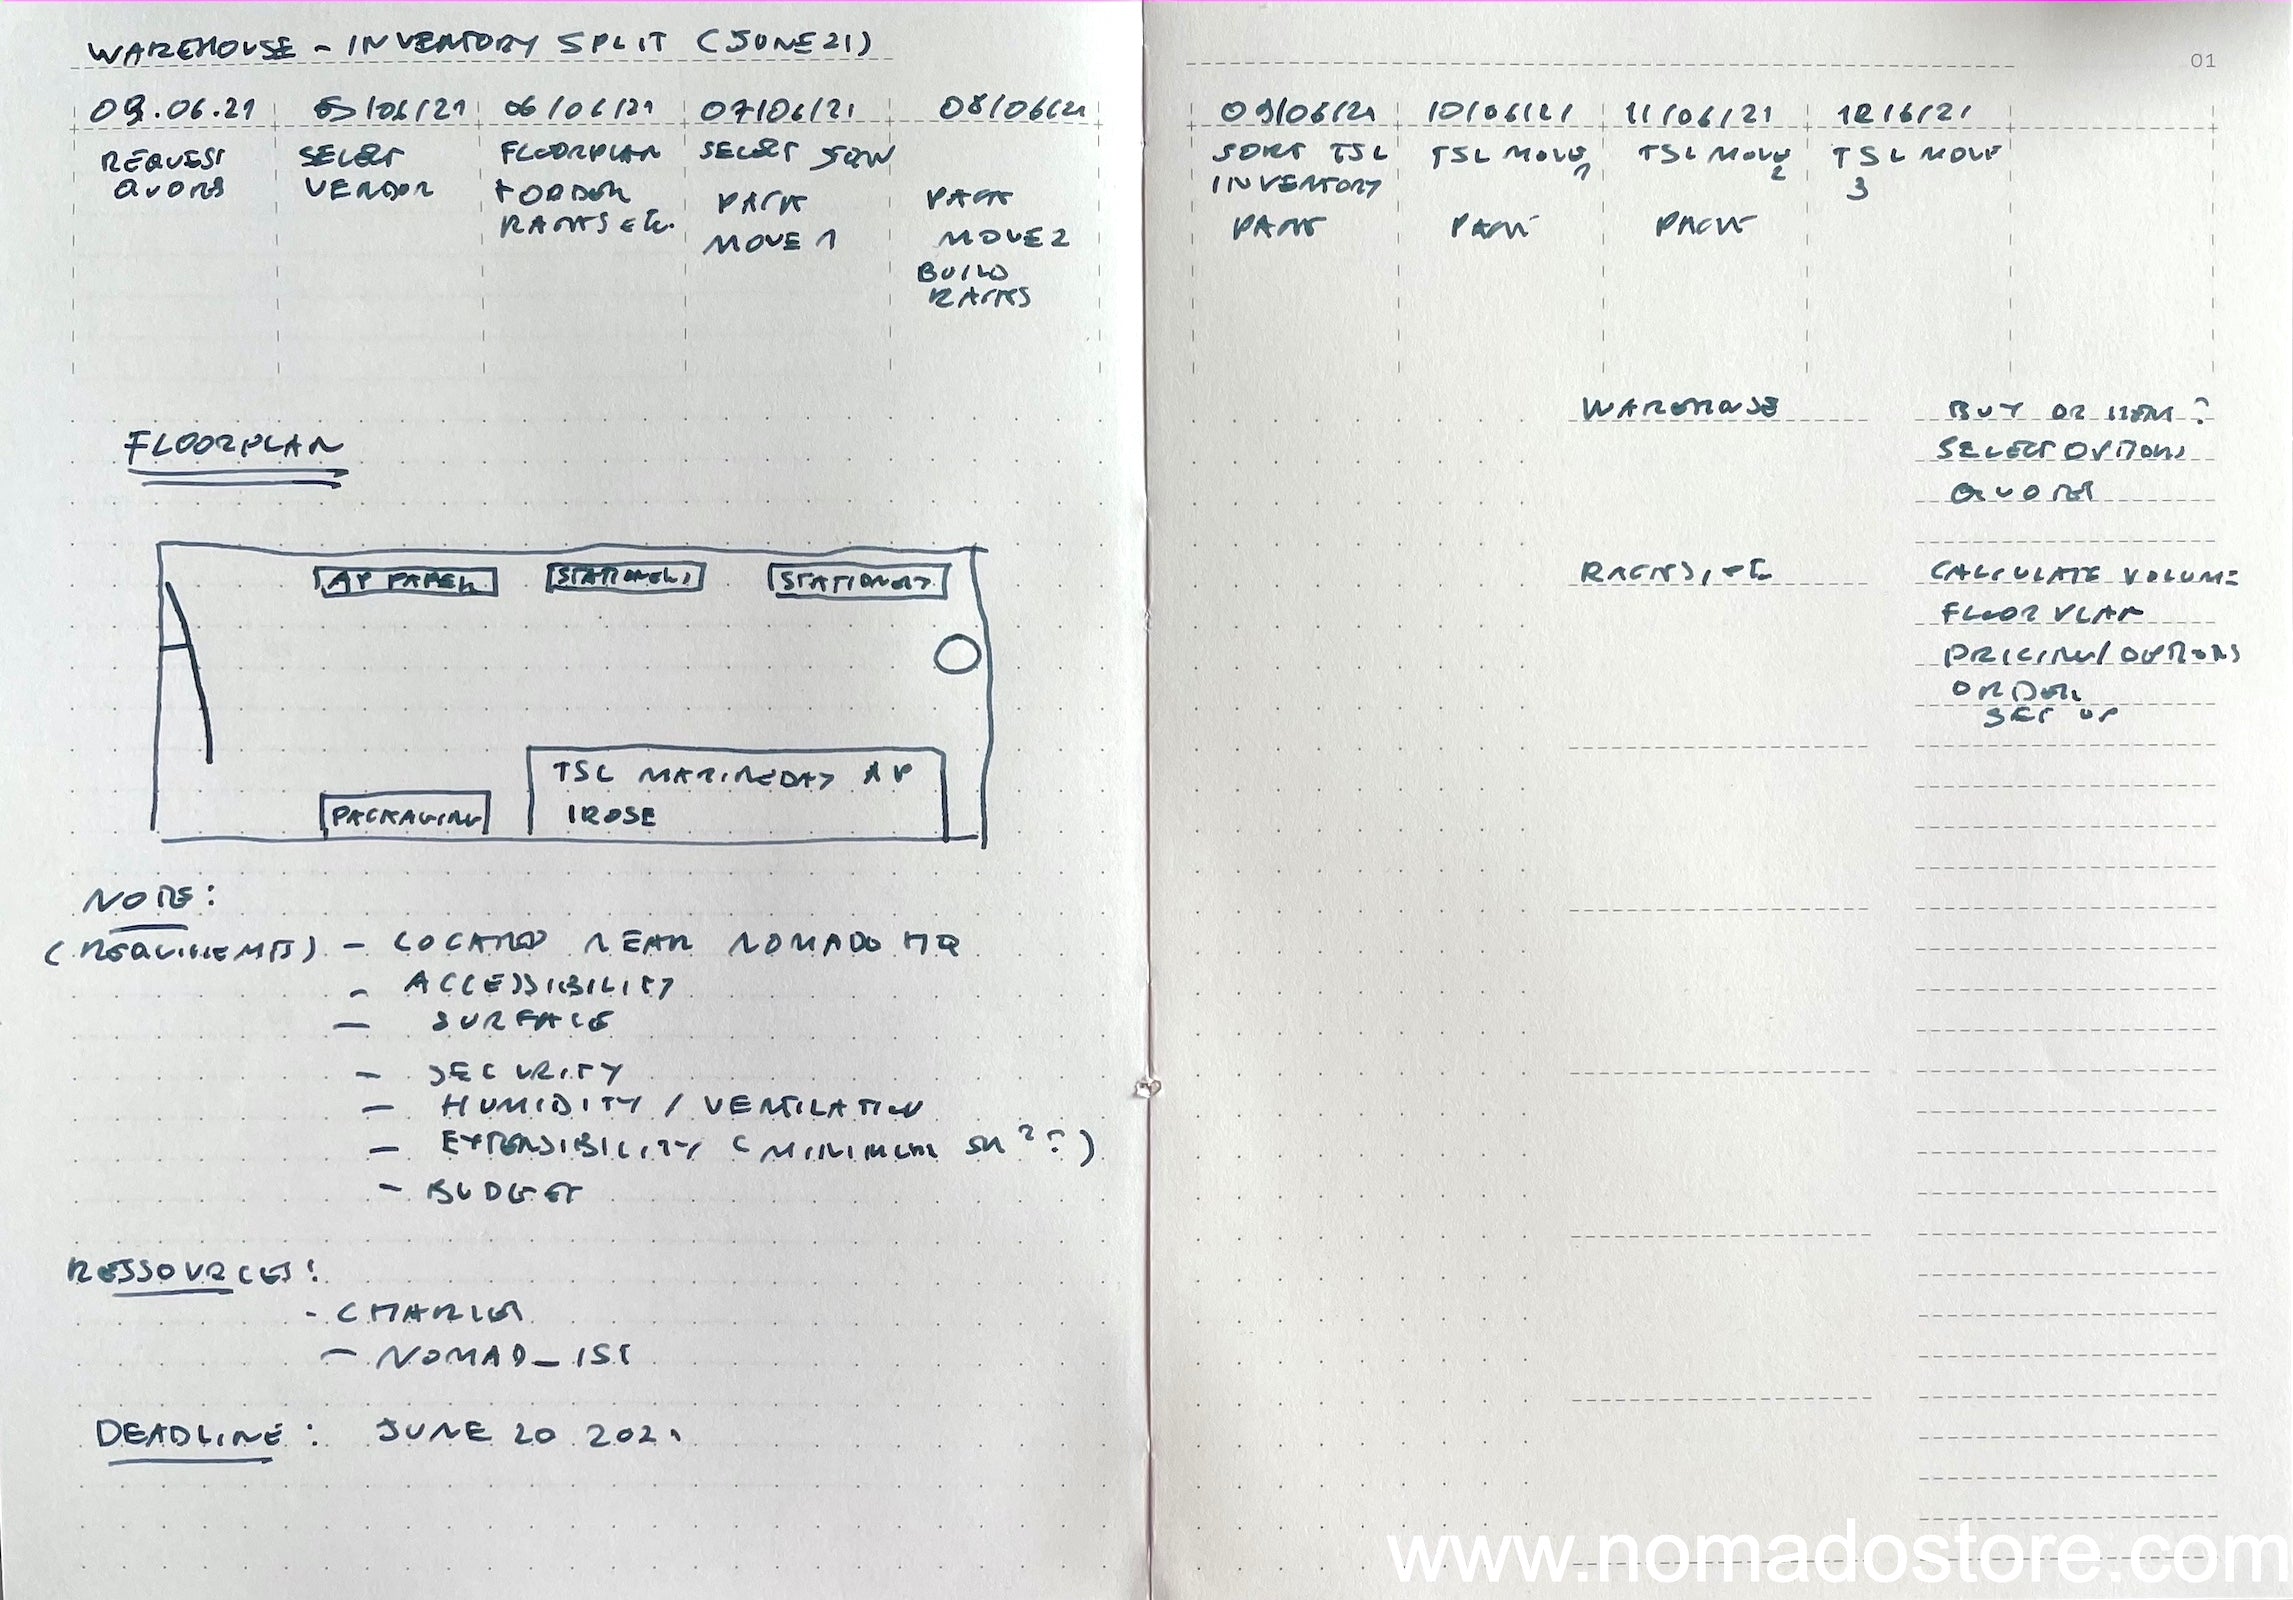 WAREHOUSE - INVENTORY SPLIT (JUNE 21)
01
09.06.21
REQUEST
QUOTES
05/06/21
SELECT
VENDOR
06/06/21
FLOORPLAN
+ ORDER
RACKS etc.
07/06/21
SELECT
PACK
MOVE 1
08/06/21
PACK
MOVE 2
BUILD
RACKS
09/06/21
SORT TSL
INVENTORY
PACK
10/06/21
TSL MOVE
1
PACK
11/06/21
TSL MOVE
2
PACK
12/6/21
TSL MOVE
3
FLOORPLAN
AP PAPER
STATIONERY
STATIONERY
PACKAGING
TSL MARINEDAY AP
IROSE
NOTE:
(REQUIREMENTS) - LOCATED NEAR NOMADO HQ
- ACCESSIBILITY
- SURFACE
- SECURITY
- HUMIDITY / VENTILATION
- EXTENSIBILITY (MINIMUM SM²?)
- BUDGET
RESSOURCES:
- CHARLES
- NOMAD_IST
DEADLINE: JUNE 20 2021
WAREHOUSE
BUY OR RENT?
SELECT OPTIONS
QUOTES
RACKS, etc
CALCULATE VOLUME
FLOOR PLAN
PRICING/OPTIONS
ORDER
SET UP
www.nomadostore.com